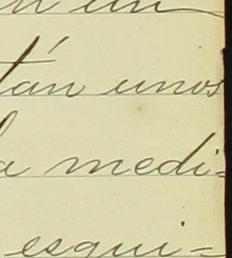 un
tán unos
a medi=
esqui=